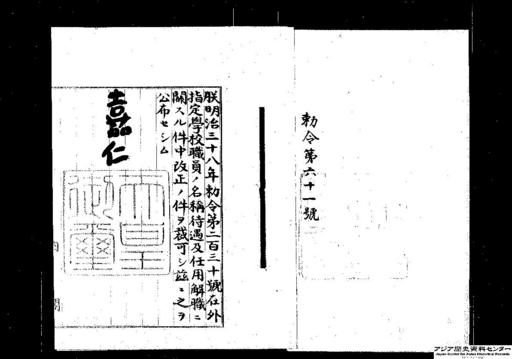 勅令第六十一號
朕明治三十八年勅令第二百三十號在外
指定學校職員ノ名稱待遇及任用解職ニ
關スル件中改正ノ件ヲ裁可シ茲ニ之ヲ
公布セシム
嘉仁
天皇
御璽
内閣
アジア歴史資料センター
Japan Center for Asian Historical Records